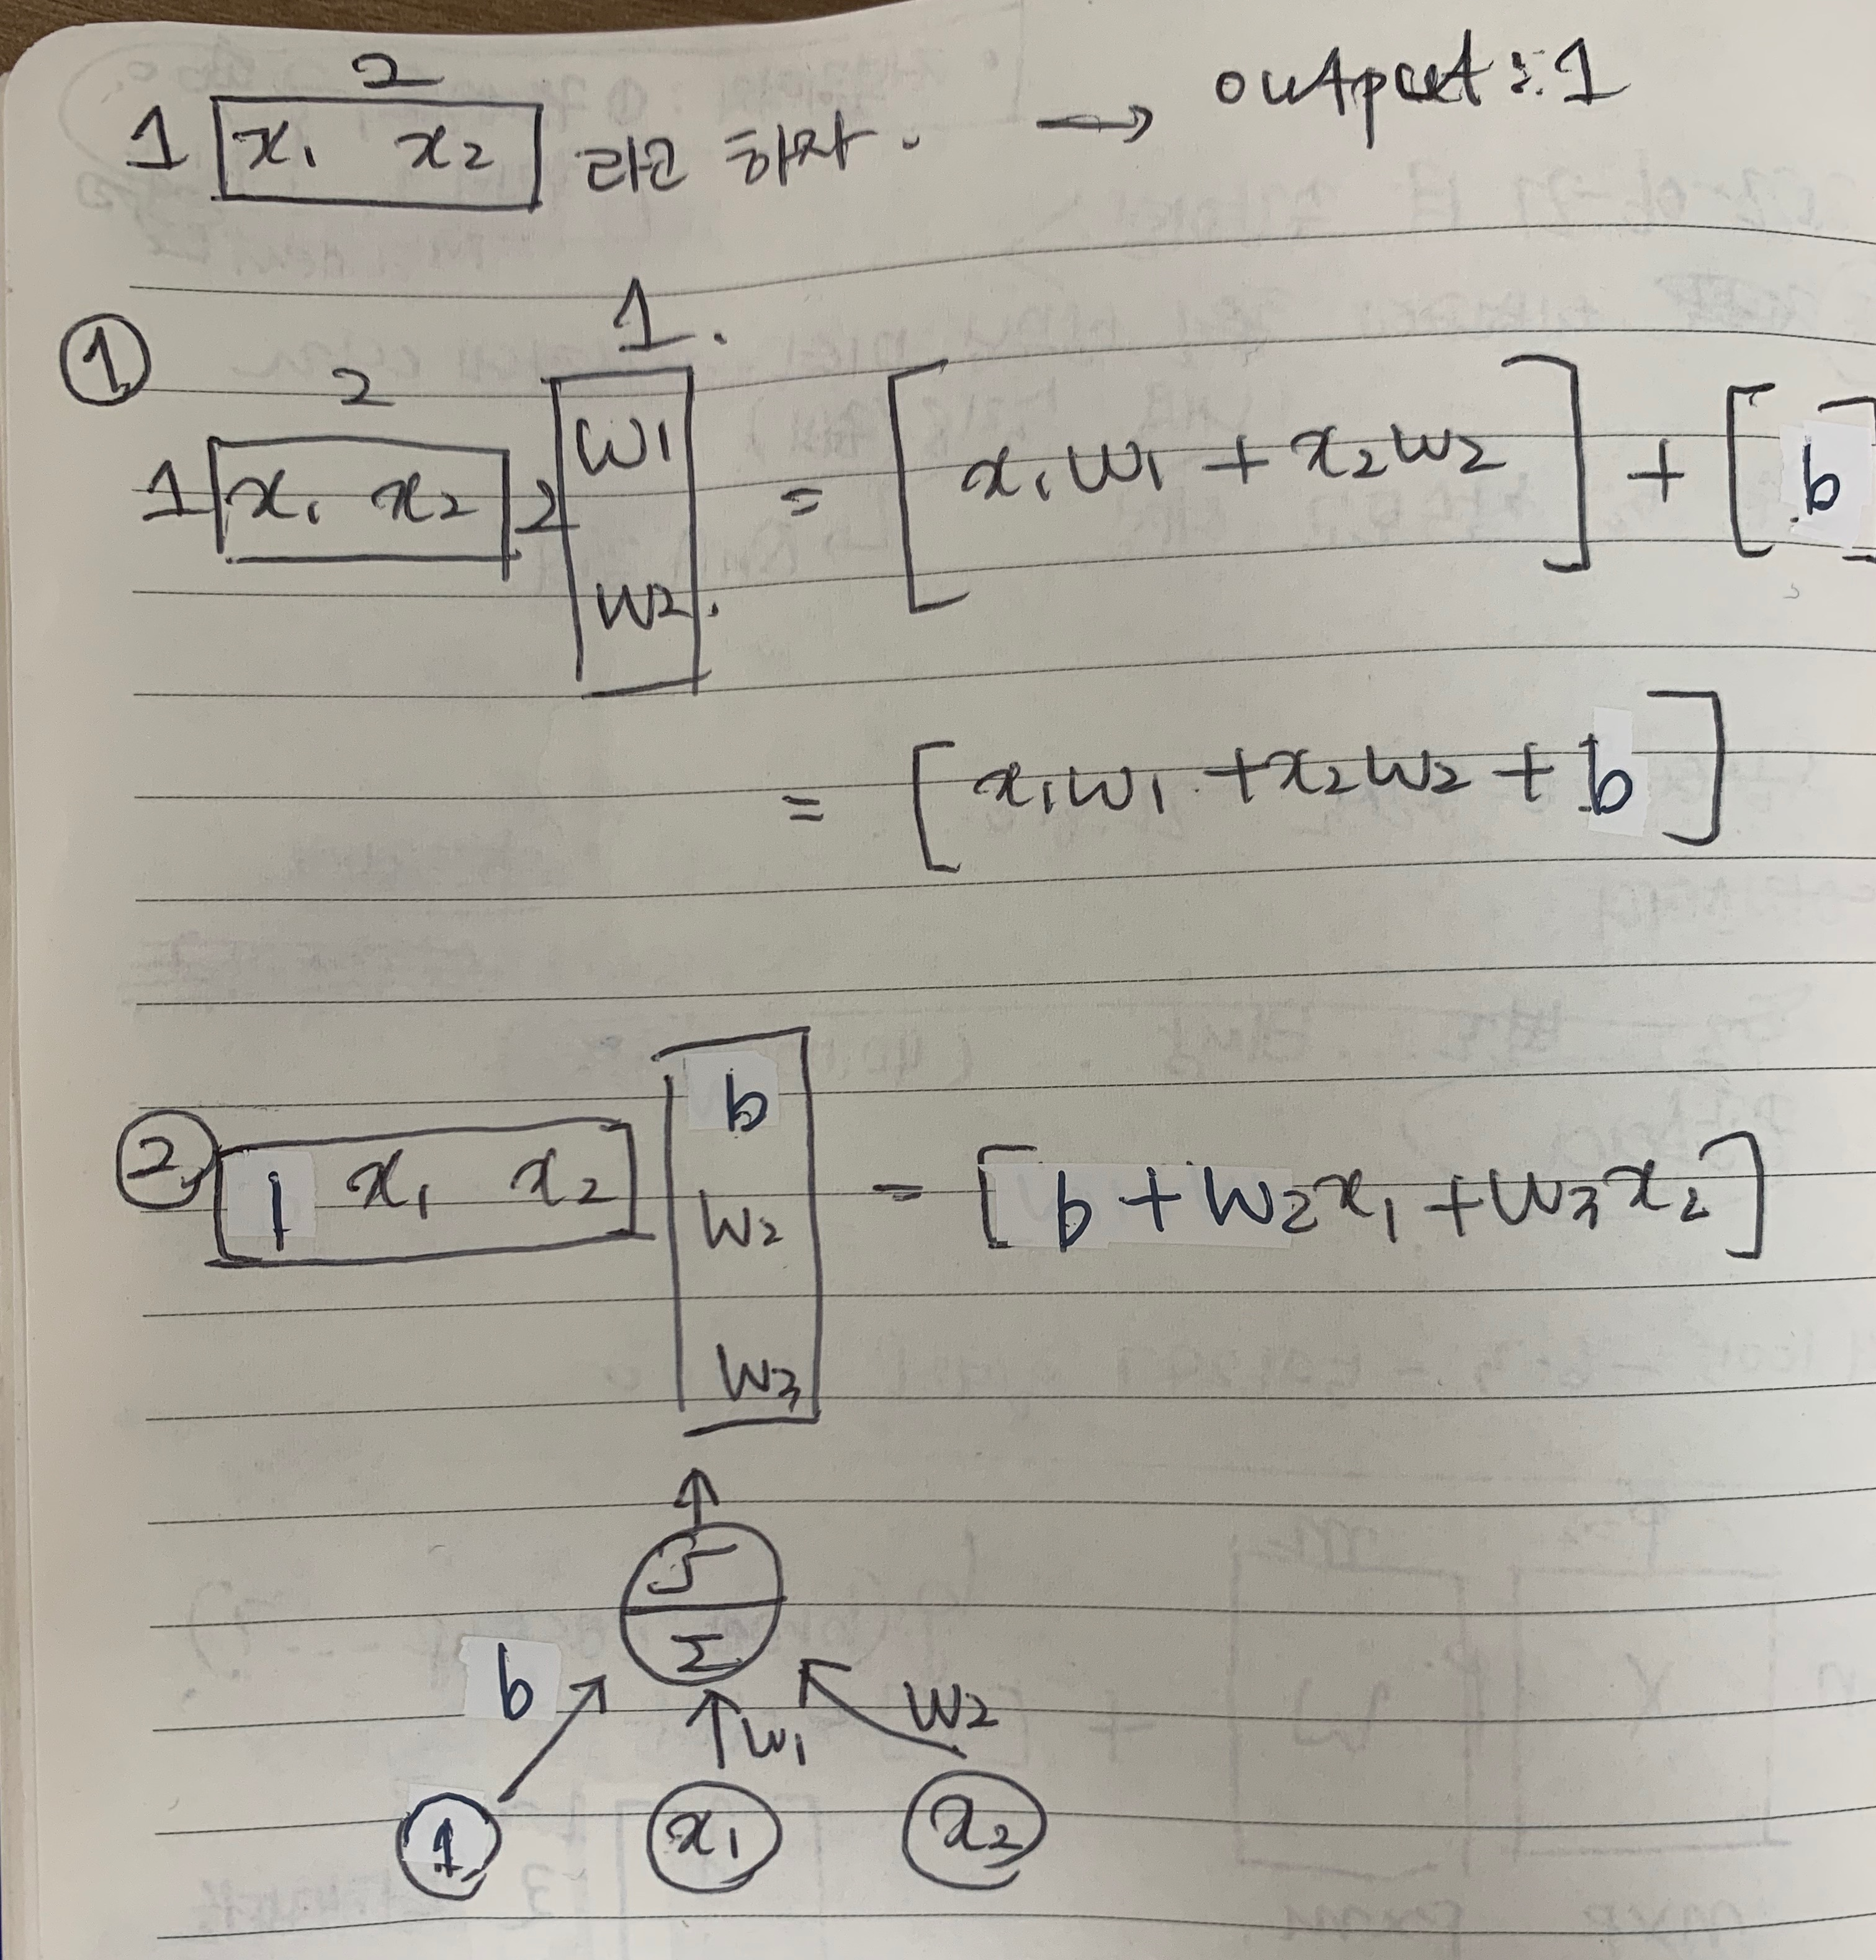 2
1 [x₁ x₂] 라고 하자. → output : 1
①
1.
2
1 [x₁ x₂] 2 [w1 w2.] = [x₁w₁ + x₂w₂] + [b]
= [x₁w₁ + x₂w₂ + b]
② [1 x₁ x₂] [b w₂ w₃] = [b + w₂x₁ + w₃x₂]
Σ
b w₁ w₂
1 x₁ x₂